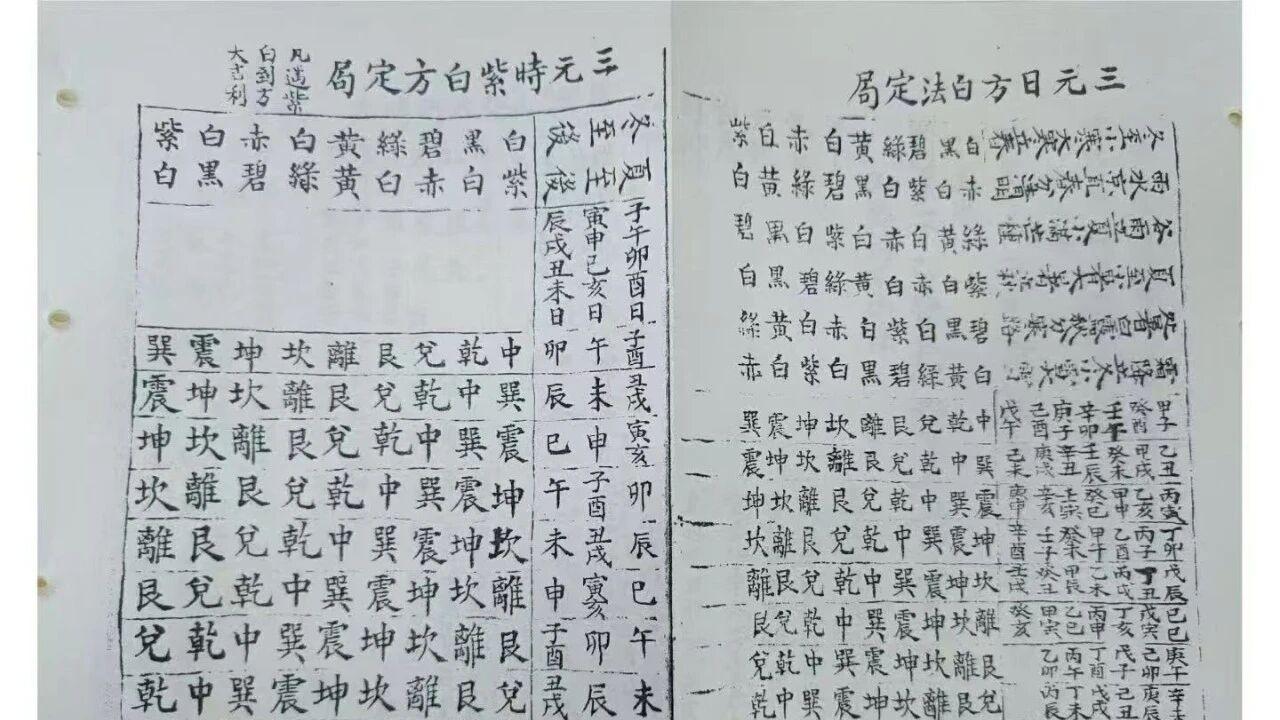 三元日方白法定局
冬至小寒大寒立春 白黑碧綠黃白赤白紫
雨水 春分清明 赤白紫白黑碧綠黃白
谷雨立夏小滿芒種 綠黃白赤白紫白黑碧
夏至小暑大暑立秋 紫白赤白黃綠碧黑白
處暑白露秋分寒露 碧黑白紫白赤白黃綠
霜降立冬小雪大雪 白黃綠碧黑白紫白赤
甲子 癸酉 壬午 辛卯 庚子 己酉 戊午 中乾兌艮離坎坤震巽
乙丑 甲戌 癸未 壬辰 辛丑 庚戌 己未 巽中乾兌艮離坎坤震
丙寅 乙亥 甲申 癸巳 壬寅 辛亥 庚申 震巽中乾兌艮離坎坤
丁卯 丙子 乙酉 甲午 壬子 辛酉 坤震巽中乾兌艮離坎
戊辰 丁丑 丙戌 乙未 甲辰 癸丑 壬戌 坎坤震巽中乾兌艮離
己巳 戊寅 丁亥 丙申 乙巳 甲寅 癸亥 離坎坤震巽中乾兌艮
庚午 己卯 戊子 丁酉 丙午 乙卯 艮離坎坤震巽中乾兌
辛未 庚辰 己丑 戊戌 丁未 丙辰 兌艮離坎坤震巽中乾
三元時紫白方定局
凡遇紫
白到方
大吉利
冬至後 白黑碧綠黃白赤白紫
夏至後 紫白赤白黃綠碧黑白
子午卯酉日
寅申巳亥日
辰戌丑未日
子酉 午 卯 中乾兌艮離坎坤震巽
丑戌 未 辰 巽中乾兌艮離坎坤震
寅亥 申 巳 震巽中乾兌艮離坎坤
卯 子酉 午 坤震巽中乾兌艮離坎
辰 丑戌 未 坎坤震巽中乾兌艮離
巳 寅亥 申 離坎坤震巽中乾兌艮
午 卯 子酉 艮離坎坤震巽中乾兌
未 辰 丑戌 兌艮離坎坤震巽中乾